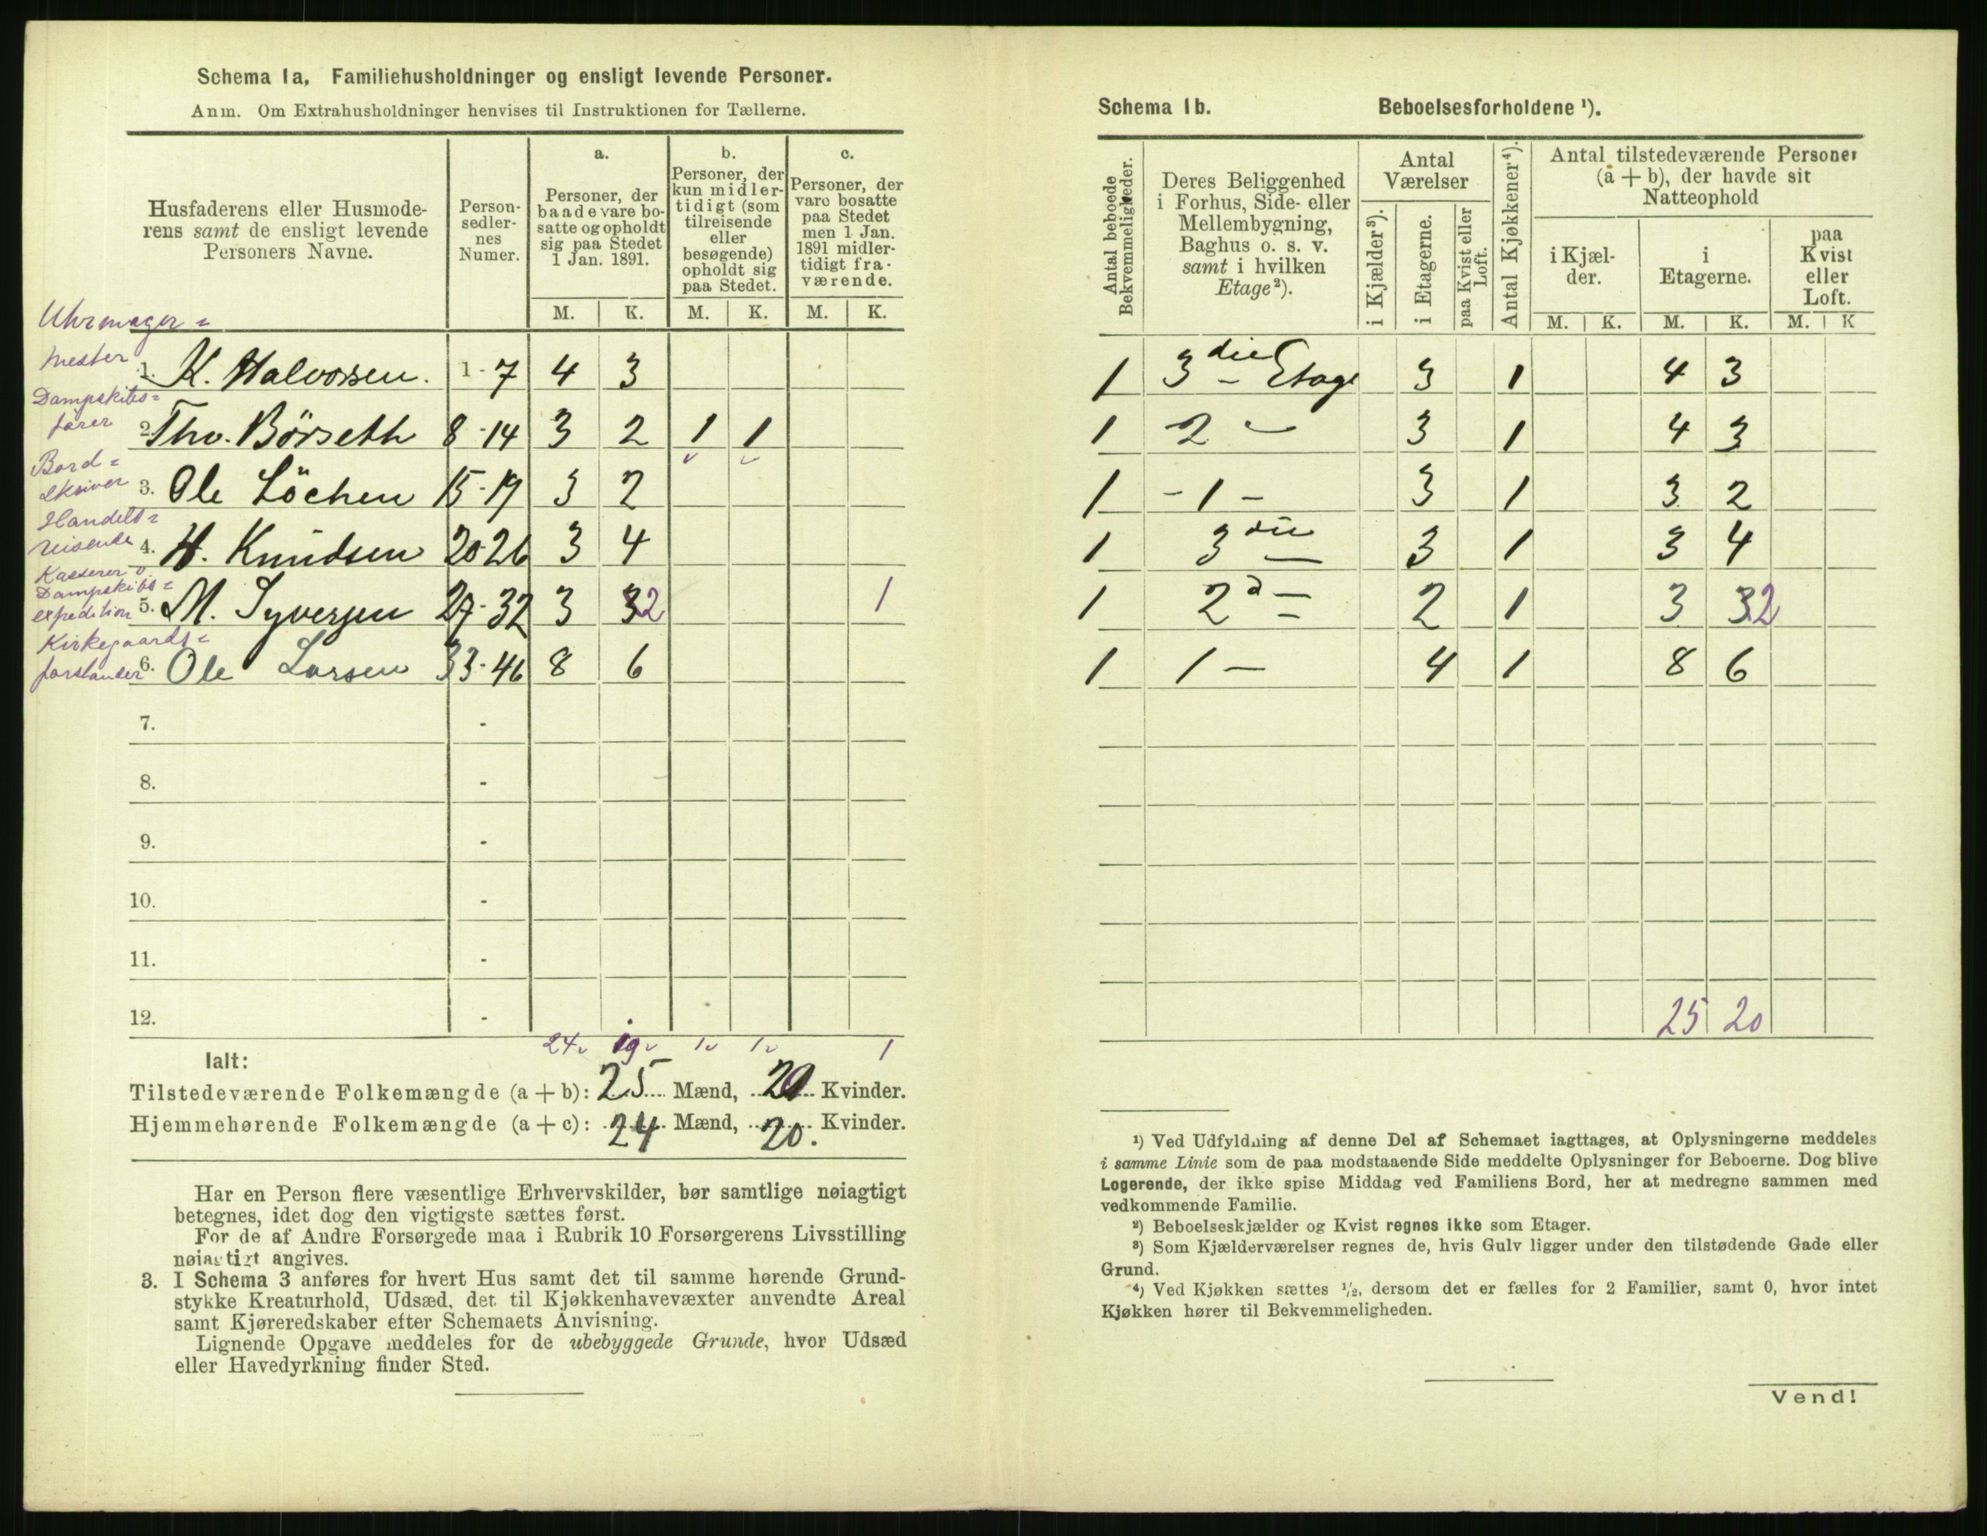 Schema 1a. Familiehusholdninger og ensligt levende Personer.
Anm. Om Extrahusholdninger henvises til Instruktionen for Tællerne.
Husfaderens eller Husmoderens samt de ensligt levende Personers Navne.
Personsedlernes Numer.
a. Personer, der baade vare bosatte og opholdt sig paa Stedet 1 Jan. 1891.
b. Personer, der kun midlertidigt (som tilreisende eller besøgende) opholdt sig paa Stedet.
c. Personer, der vare bosatte paa Stedet men 1 Jan. 1891 midlertidigt fraværende.
M. K. M. K. M. K.
Uhrmager=
mester 1. K. Halvorsen. 1-7 4 3
Dampskibs=
fører 2. Thv. Börseth 8-14 3 2 1 1
Bord=
skriver 3. Ole Löchen 15-19 3 2
Handels=
reisende 4. H. Knudsen 20-26 3 4
Kasserer v.
Dampskibs=
expedition 5. M. Syversen 27-32 3 3 2 1
Kirkegaards=
forstander 6. Ole Larsen 33-46 8 6
7. -
8. -
9. -
10. -
11. -
12. -
24 19 1 1 1
Ialt:
Tilstedeværende Folkemængde (a + b): 25 Mænd, 20 Kvinder.
Hjemmehørende Folkemængde (a + c): 24 Mænd, 20. Kvinder.
Har en Person flere væsentlige Erhvervskilder, bør samtlige nøiagtigt
betegnes, idet dog den vigtigste sættes først.
For de af Andre Forsørgede maa i Rubrik 10 Forsørgerens Livsstilling
nøiagtigt angives.
3. I Schema 3 anføres for hvert Hus samt det til samme hørende Grund-
stykke Kreaturhold, Udsæd, det til Kjøkkenhavevæxter anvendte Areal
samt Kjøreredskaber efter Schemaets Anvisning.
Lignende Opgave meddeles for de ubebyggede Grunde, hvor Udsæd
eller Havedyrkning finder Sted.
Schema 1b. Beboelsesforholdene ¹).
Antal beboede Bekvemmeligheder.
Deres Beliggenhed i Forhus, Side- eller Mellembygning, Baghus o. s. v. samt i hvilken Etage²).
Antal Værelser
i Kjælder³).
i Etagerne.
paa Kvist eller Loft.
Antal Kjøkkener⁴).
Antal tilstedeværende Personer (a + b), der havde sit Natteophold
i Kjælder.
i Etagerne.
paa Kvist eller Loft.
M. K. M. K. M. K
1 3die Etage 3 1 4 3
1 2 - 3 1 4 3
1 - 1 - 3 1 3 2
1 3die - 3 1 3 4
1 2d - 2 1 3 3 2
1 1 - 4 1 8 6
25 20
¹) Ved Udfyldning af denne Del af Schemaet iagttages, at Oplysningerne meddeles
i samme Linie som de paa modstaaende Side meddelte Oplysninger for Beboerne. Dog blive
Logerende, der ikke spise Middag ved Familiens Bord, her at medregne sammen med
vedkommende Familie.
²) Beboelseskjælder og Kvist regnes ikke som Etager.
³) Som Kjælderværelser regnes de, hvis Gulv ligger under den tilstødende Gade eller
Grund.
⁴) Ved Kjøkken sættes ½, dersom det er fælles for 2 Familier, samt 0, hvor intet
Kjøkken hører til Bekvemmeligheden.
Vend!